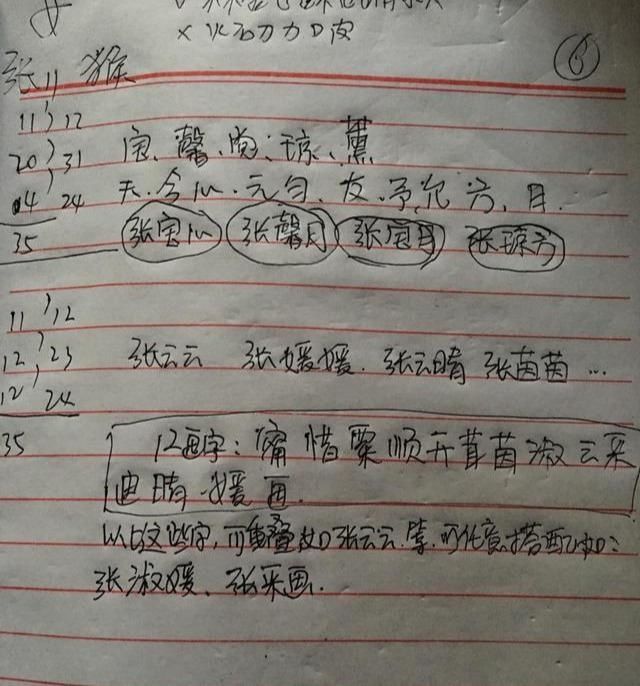 × 火石刀力口皮
⑥
张11 猴
11 12
20 31 宝、馨、尚、琼、薰
04 24 天.今心.元匀.友.予允方.月.
35 张宝心 张馨月 张宝月 张琼方
11 12
12 23 张云云 张媛媛.张云晴 张茵茵...
12 24
35 12画字: 惜粟顺开茸茵淑云采
迪晴媛画.
以上这些字,可重叠如张云云.等.可任意搭配如:
张淑媛、张采画.